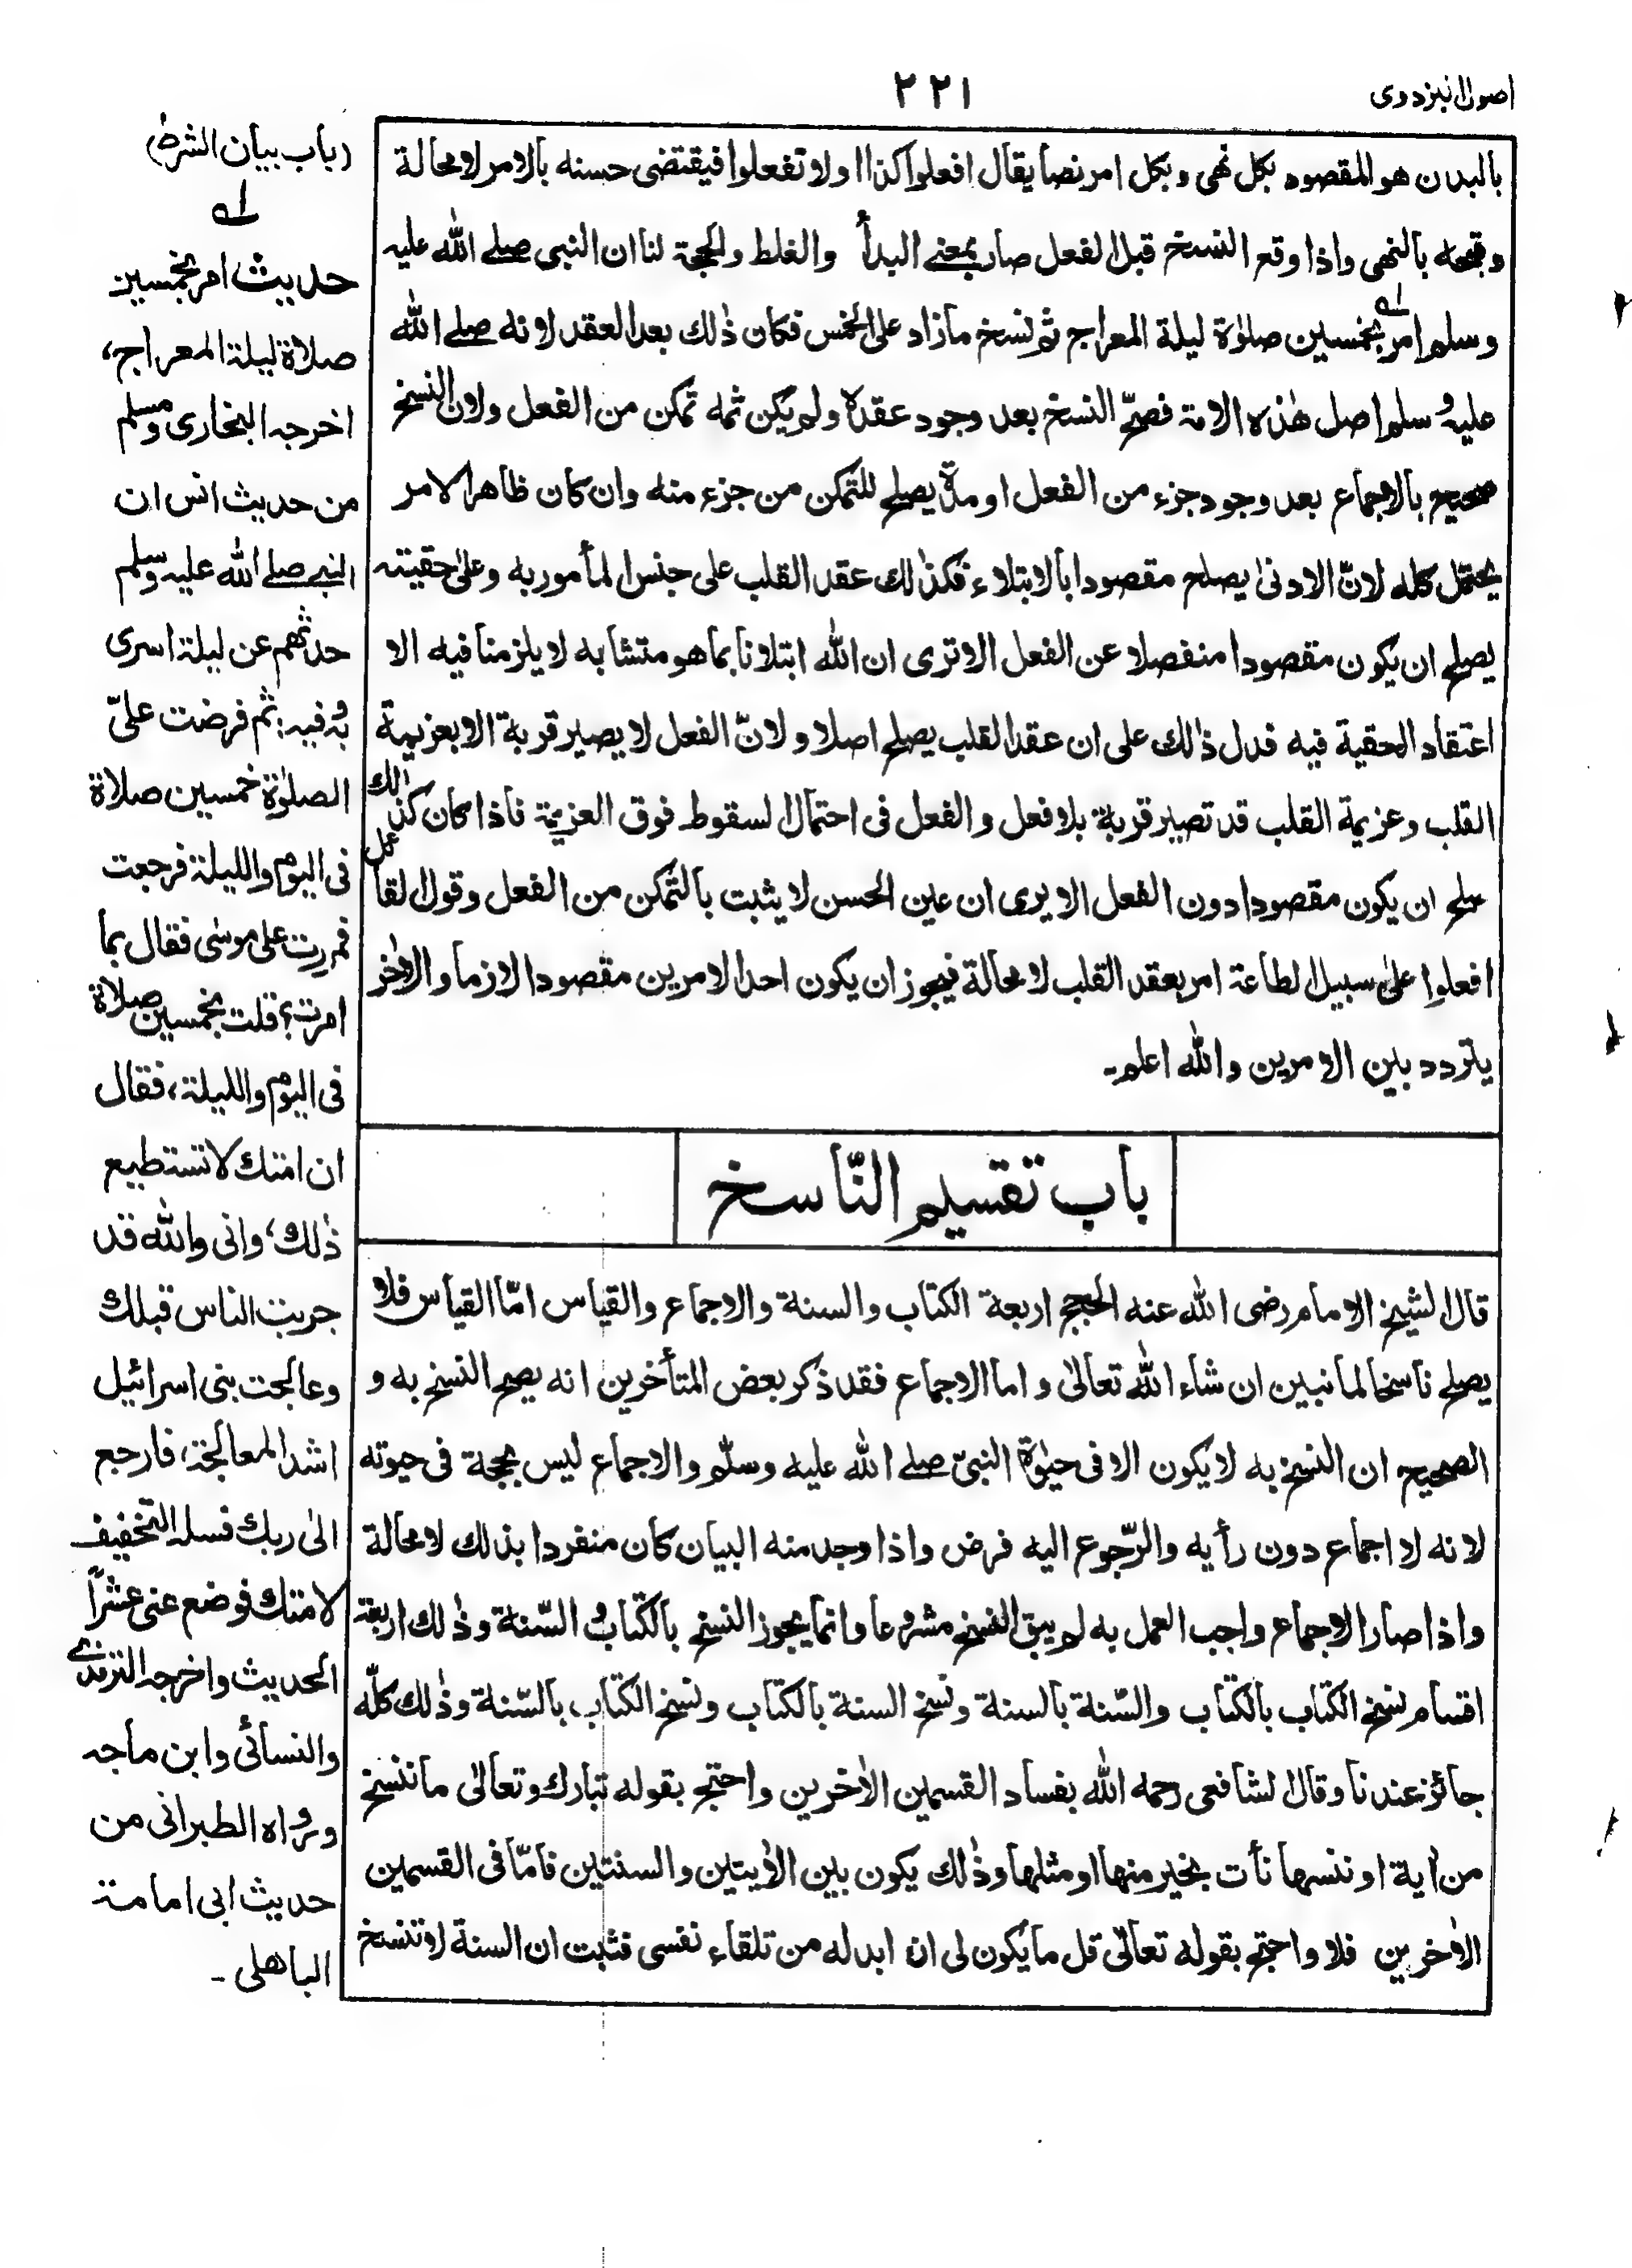 اصول البزدوى
٢٢١
بالبدن هو المقصود بكل نهى وبكل امر نصا يقال افعلوا كذا او لا تفعلوا فيقتضى حسنه بالامر لا محالة
وقبحه بالنهى واذا وقع النسخ قبل الفعل صار بمعنے البدأ والغلط والحجة لنا ان النبى صلے اللّٰه عليه
وسلم امر بخمسين صلٰوة ليلة المعراج ثم نسخ ما زاد على الخمس فكان ذٰلك بعد العقد لانه صلے اللّٰه
عليه وسلم اصل هٰذه الامة فصحّ النسخ بعد وجود عقده ولم يكن ثمه تمكن من الفعل ولان النسخ
صحيح بالاجماع بعد وجود جزء من الفعل او مدّة يصلح للتمكن من جزء منه وان كان ظاهر الامر
يحتمل كله لانّ الادنٰى يصلح مقصودا بالابتلاء فكذٰلك عقد القلب على جنس المأمور به وعلٰى حقيته
يصلح ان يكون مقصودا منفصلا عن الفعل الا ترى ان اللّٰه ابتلانا بما هو متشابه لا يلزمنا فيه الا
اعتقاد الحقية فيه فدل ذٰلك على ان عقد القلب يصلح اصلا ولانّ الفعل لا يصير قربة الا بعزيمة
القلب وعزيمة القلب قد تصير قربة بلا فعل والفعل فى احتمال السقوط فوق العزيمة فاذا كان كذالك
صلح ان يكون مقصودا دون الفعل الا يرى ان عين الحسن لا يثبت بالتمكن من الفعل وقول القائل
افعلوا علٰى سبيل الطاعة امر بعقد القلب لا محالة فيجوز ان يكون احد الامرين مقصودا لازما والاٰخر
يتردد بين الامرين واللّٰه اعلم۔
باب تقسيم النّاسخ
قال الشيخ الامام رضى اللّٰه عنه الحجج اربعة الكتاب والسنة والاجماع والقياس امّا القياس فلا
يصلح ناسخا لما نبين ان شاء اللّٰه تعالٰى واما الاجماع فقد ذكر بعض المتأخرين انه يصح النسخ به و
الصحيح ان النسخ به لا يكون الا فى حيٰوة النبىّ صلے اللّٰه عليه وسلّم والاجماع ليس بحجة فى حيوته
لانه لا اجماع دون رأيه والرّجوع اليه فرض واذا وجد منه البيان كان منفردا بذلك لا محالة
واذا صار الاجماع واجب العمل به لم يبق النسخ مشروعا وانما يجوز النسخ بالكتاب والسّنة وذٰلك اربعة
اقسام نسخ الكتاب بالكتاب والسّنة بالسنة ونسخ السنة بالكتاب ونسخ الكتاب بالسّنة وذٰلك كلّه
جائز عندنا وقال الشافعى رحمه اللّٰه بفساد القسمين الاٰخرين واحتج بقوله تبارك وتعالٰى ما ننسخ
من اٰية او ننسها نأت بخير منها او مثلها وذٰلك يكون بين الاٰيتين والسنتين فامّا فى القسمين
الاٰخرين فلا واحتج بقوله تعالٰى قل ما يكون لى ان ابدله من تلقاء نفسى فثبت ان السنة لا تنسخ
(باب بيان الشرط)
لہ
حديث امر بخمسين
صلاة ليلة المعراج،
اخرجه البخارى ومسلم
من حديث انس ان
النبے صلے اللّٰه عليه وسلم
حدثهم عن ليلة اسرى
به وفيه: ثم فرضت علىّ
الصلٰوة خمسين صلاة
فى اليوم والليلة فرجعت
فمررت على موسٰى فقال بما
امرت؟ قلت بخمسين صلاة
فى اليوم والليلة، فقال
ان امتك لا تستطيع
ذٰلك، وانى واللّٰه قد
جربت الناس قبلك
وعالجت بنى اسرائيل
اشد المعالجة، فارجع
الٰى ربك فسله التخفيف
لامتك فوضع عنى عشراً
الحديث واخرجه الترمذے
والنسائى وابن ماجه
ورواه الطبرانى من
حديث ابى امامة
الباهلى ۔